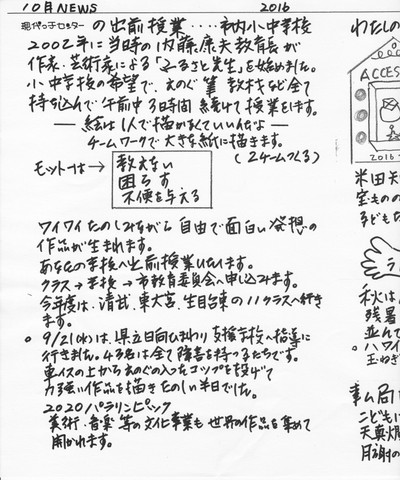 10月NEWS 2016
現代っ子センターの出前授業‥‥市内小中学校
2002年に当時の内藤康夫教育長が
作家・芸術家による「ふるさと先生」を始めました。
小中学校の希望で、えのぐ 筆 教材など全て
持ち込んで午前中3時間 続けて授業をします。
― 絵は1人で描かなくていいんだよ ―
チームワークで大きな紙に描きます。
(2チームつくる)
モットーは→
教えない
困らす
不便を与える
ワイワイたのしみながら自由で面白い発想の
作品が生まれます。
あなたの学校へ出前授業いたします。
クラス→学校→市教育委員会へ申し込みます。
今年度は、清武、東大宮、生目台東の11クラスへ行き
ます。
○ 9/21(水)は、県立日向ひまわり支援学校へ指導に
行きました。43名は全て障害を持つ子たちです。
車イスの上からえのぐの入ったコップを投げて
力強い作品を描きたのしい半日でした。
2020パラリンピック
美術・音楽等の文化事業も世界の作品を集めて
開かれます。
わたしの
ACCESS
2016
米田天
宝もの
子ども
秋は
残暑
並んで
○ハワイ
玉ねぎ
事ム局
こどもに
天真爛
月謝の